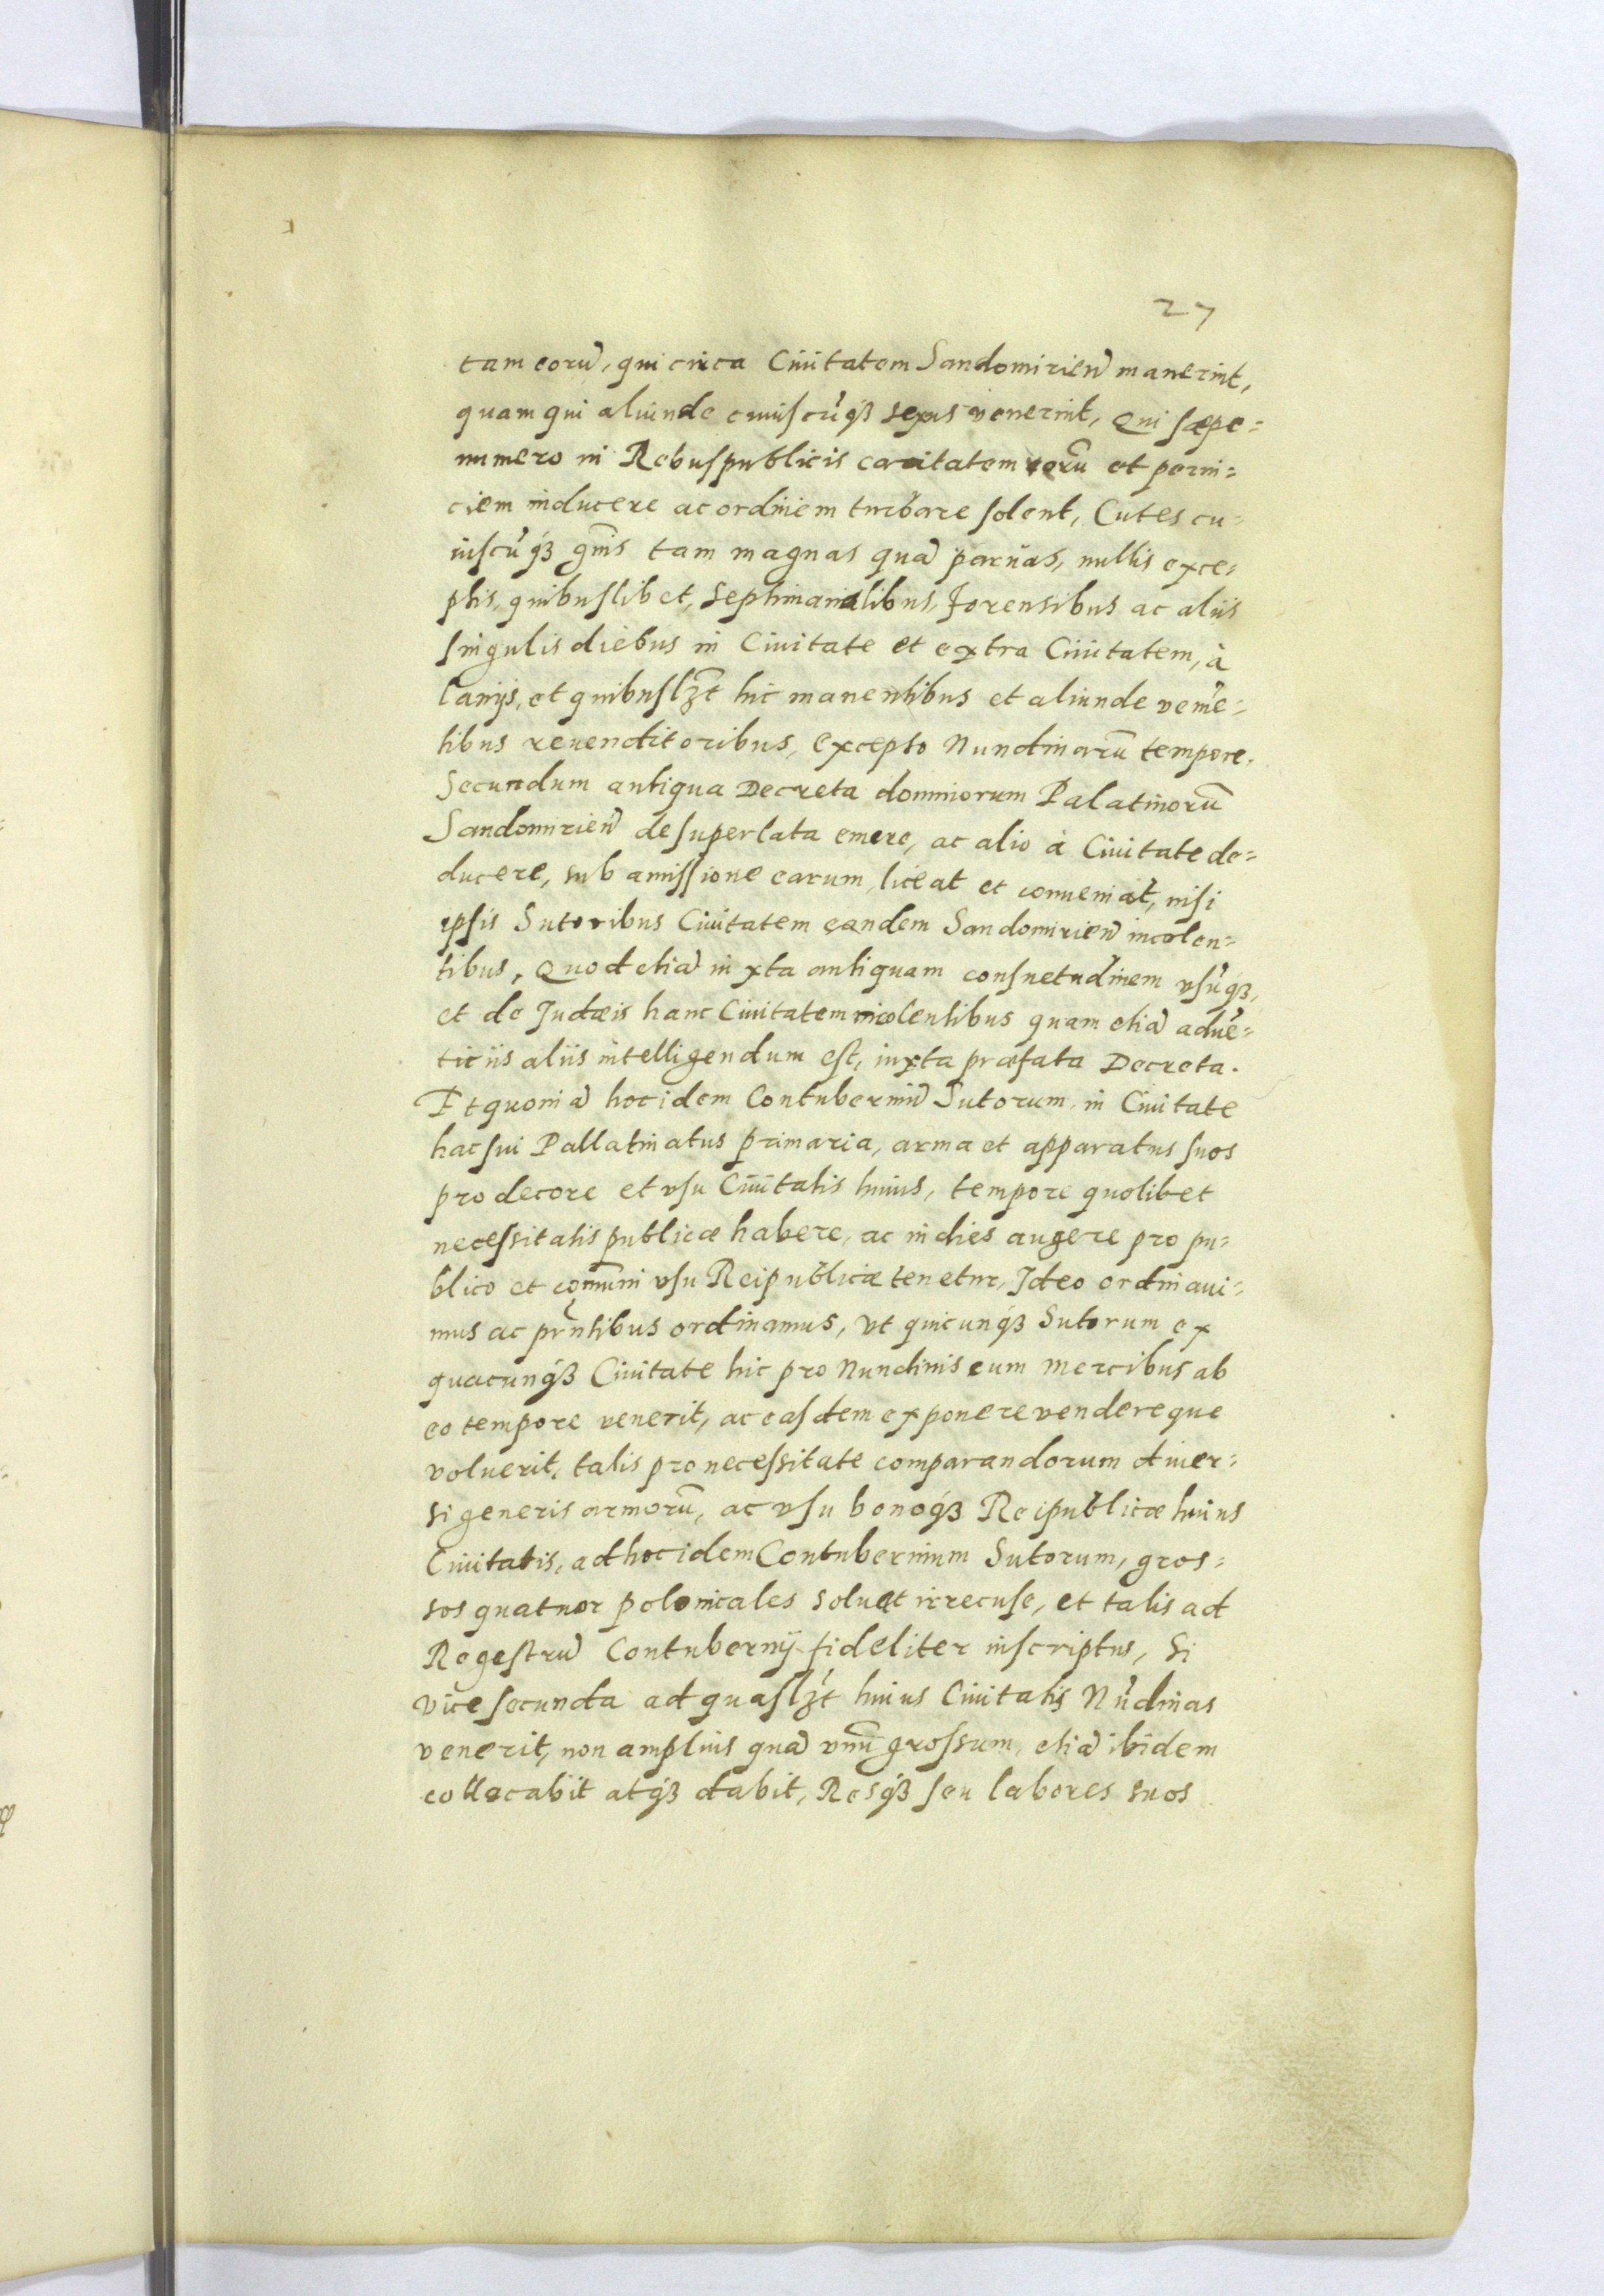 27
tam eorũ, qui circa Ciuitatem Sandomirieñ manerint,
quam qui aliunde cuiuscũqꝫ sexus venerint, Qui sæpe=
numero in Rebuspublicis caritatem rerũ et perni=
ciem inducere ac ordinem turbare solent, Cutes cu=
iuscũqꝫ gñis tam magnas quã paruas, nullis exce=
ptis, quibuslibet, Septimanalibus, forensibus ac aliis
singulis diebus in Ciuitate et extra Ciuitatem, à
lanijs, et quibuslꝫt hic manentibus et aliunde veniẽ=
tibus reuenditoribus, excepto Nundinarũ tempore,
Secundum antiqua Decreta dominiorum Palatinorũ
Sandomirieñ desuper lata emere, ac alio à Ciuitate de=
ducere, sub amissione earum, liceat et conueniat, nisi
ipsis Sutoribus Ciuitatem eandem Sandomirieñ incolen=
tibus, Quod etiã iuxta antiquam consuetudinem vsũqꝫ,
et de Judæis hanc Ciuitatem incolentibus quam etiã aduẽ=
ticiis aliis intelligendum est, iuxta præfata Decreta.
Et quoniã hoc idem Contuberniũ Sutorum in Ciuitate
hac sui Pallatinatus primaria, arma et apparatus suos
pro decore et vsu Ciuitatis huius, tempore quolibet
necessitatis publicæ habere, ac in dies augere pro pu=
blico et cõmuni vsu Reipublicæ tenetur, Ideo ordinaui=
mus ac prñtibus ordinamus, vt quicunqꝫ Sutorum ex
quacunqꝫ Ciuitate hic pro Nundinis cum mercibus ab
eo tempore venerit, ac easdem exponere vendereque
voluerit, talis pro necessitate comparandorum diuer=
si generis armorũ, ac vsu bonoqꝫ Reipublicæ huius
Ciuitatis, ad hoc idem Contubernium Sutorum, gros=
sos quatuor polonicales soluat irrecuse, et talis ad
Regestrũ Contubernij fideliter inscriptus, Si
vice secunda ad quaslꝫt huius Ciuitatis Nũdinas
venerit, non amplius quã vnũ grossum, etiã ibidem
collocabit atqꝫ dabit, Resqꝫ seu labores suos